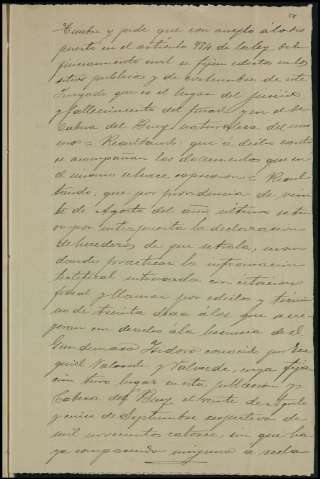 Hambre y pide que con arreglo á lo dis
puesto en el artículo 984 de la ley de en
juiciamiento civil se fijen edictos en los
sitios publicos y de costumbre de este
Juzgado que es el lugar del juicio
y fallecimiento del finado y en el de
Cabeza del Buey, naturaleza del mis
mo = Resultando, que á dicho escrito
se acompañan los documentos que en
el mismo se hace expresion = Resul
tando, que por providencia de vein
te de Agosto del año ultimo se tu
vo por interpuesta la declaracion
de herederos, de que se trata, man
dando practicar la informacion
testifical interesada con citacion
fiscal y llamar por edictos y termi
no de treinta dias á los que se cre
yeran con derecho á la herencia de d.
Gundemaro Isidoro conocido por Eze
quiel Valverde y Valverde, cuya fija
cion tuvo lugar en esta poblacion y
Cabeza del Buey el veinte de Agosto
y cinco de Septiembre respectivo de
mil novecientos catorce, sin que ha
ya comparecido ninguno á recla